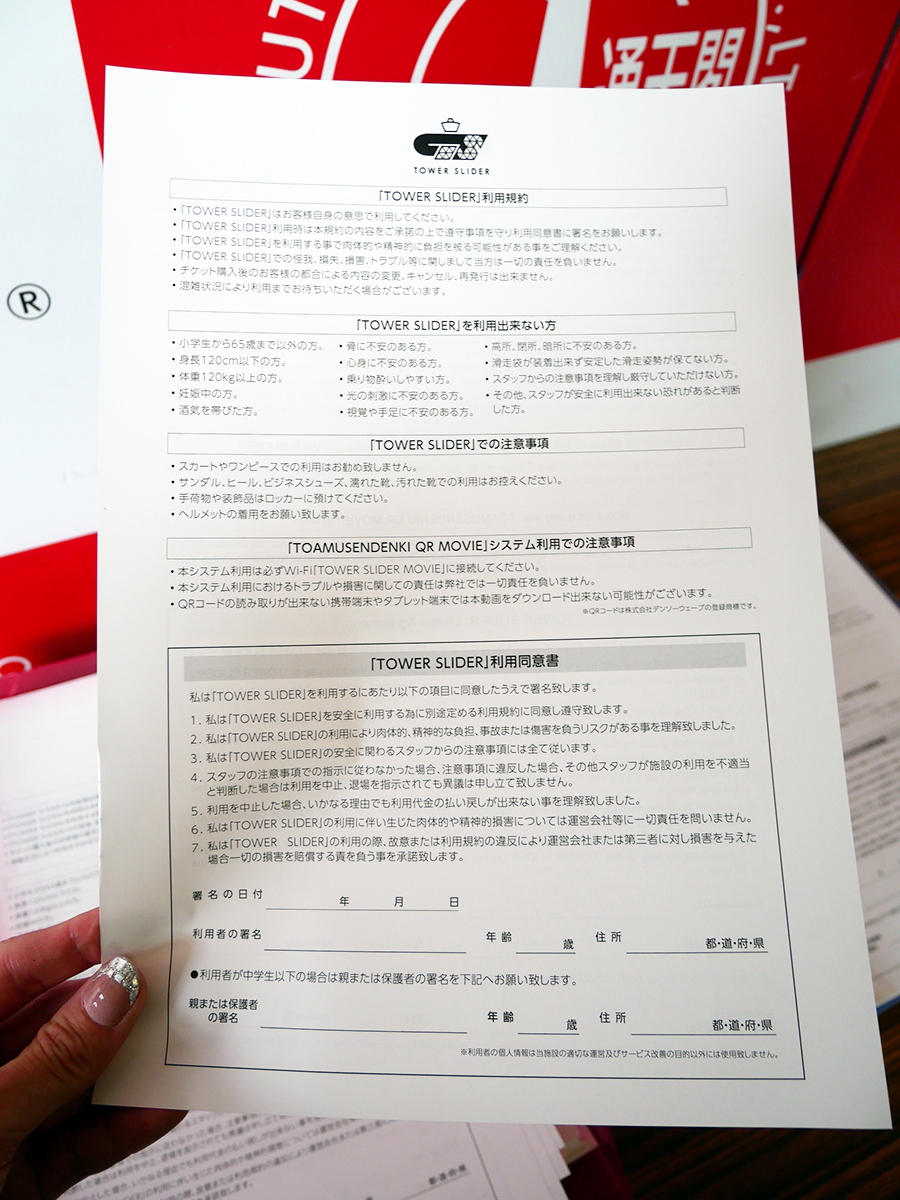 通天閣
®
TOWER SLIDER
「TOWER SLIDER」利用規約
・「TOWER SLIDER」はお客様自身の意思で利用してください。
・「TOWER SLIDER」利用時は本規約の内容をご承諾の上で遵守事項を守り利用同意書に署名をお願いします。
・「TOWER SLIDER」を利用する事で肉体的や精神的に負担を被る可能性がある事をご理解ください。
・「TOWER SLIDER」での怪我、損失、損害、トラブル等に関しまして当方は一切の責任を負いません。
・チケット購入後のお客様の都合による内容の変更、キャンセル、再発行は出来ません。
・混雑状況により利用までお待ちいただく場合がございます。
「TOWER SLIDER」を利用出来ない方
・小学生から65歳まで以外の方。
・身長120cm以下の方。
・体重120kg以上の方。
・妊娠中の方。
・酒気を帯びた方。
・骨に不安のある方。
・心身に不安のある方。
・乗り物酔いしやすい方。
・光の刺激に不安のある方。
・視覚や手足に不安のある方。
・高所、閉所、暗所に不安のある方。
・滑走袋が装着出来ず安定した滑走姿勢が保てない方。
・スタッフからの注意事項を理解し厳守していただけない方。
・その他、スタッフが安全に利用出来ない恐れがあると判断
した方。
「TOWER SLIDER」での注意事項
・スカートやワンピースでの利用はお勧め致しません。
・サンダル、ヒール、ビジネスシューズ、濡れた靴、汚れた靴での利用はお控えください。
・手荷物や装飾品はロッカーに預けてください。
・ヘルメットの着用をお願い致します。
「TOAMUSENDENKI QR MOVIE」システム利用での注意事項
・本システム利用は必ずWi-Fi「TOWER SLIDER MOVIE」に接続してください。
・本システム利用におけるトラブルや損害に関しての責任は弊社では一切責任を負いません。
・QRコードの読み取りが出来ない携帯端末やタブレット端末では本動画をダウンロード出来ない可能性がございます。
※QRコードは株式会社デンソーウェーブの登録商標です。
「TOWER SLIDER」利用同意書
私は「TOWER SLIDER」を利用するにあたり以下の項目に同意したうえで署名致します。
1. 私は「TOWER SLIDER」を安全に利用する為に別途定める利用規約に同意し遵守致します。
2. 私は「TOWER SLIDER」の利用により肉体的、精神的な負担、事故または傷害を負うリスクがある事を理解致しました。
3. 私は「TOWER SLIDER」の安全に関わるスタッフからの注意事項には全て従います。
4. スタッフの注意事項での指示に従わなかった場合、注意事項に違反した場合、その他スタッフが施設の利用を不適当
と判断した場合は利用を中止、退場を指示されても異議は申し立て致しません。
5. 利用を中止した場合、いかなる理由でも利用代金の払い戻しが出来ない事を理解致しました。
6. 私は「TOWER SLIDER」の利用に伴い生じた肉体的や精神的損害については運営会社等に一切責任を問いません。
7. 私は「TOWER SLIDER」の利用の際、故意または利用規約の違反により運営会社または第三者に対し損害を与えた
場合一切の損害を賠償する責を負う事を承諾致します。
署名の日付 年 月 日
利用者の署名 年齢 歳 住所 都・道・府・県
●利用者が中学生以下の場合は親または保護者の署名を下記へお願い致します。
親または保護者
の署名 年齢 歳 住所 都・道・府・県
※利用者の個人情報は当施設の適切な運営及びサービス改善の目的以外には使用致しません。